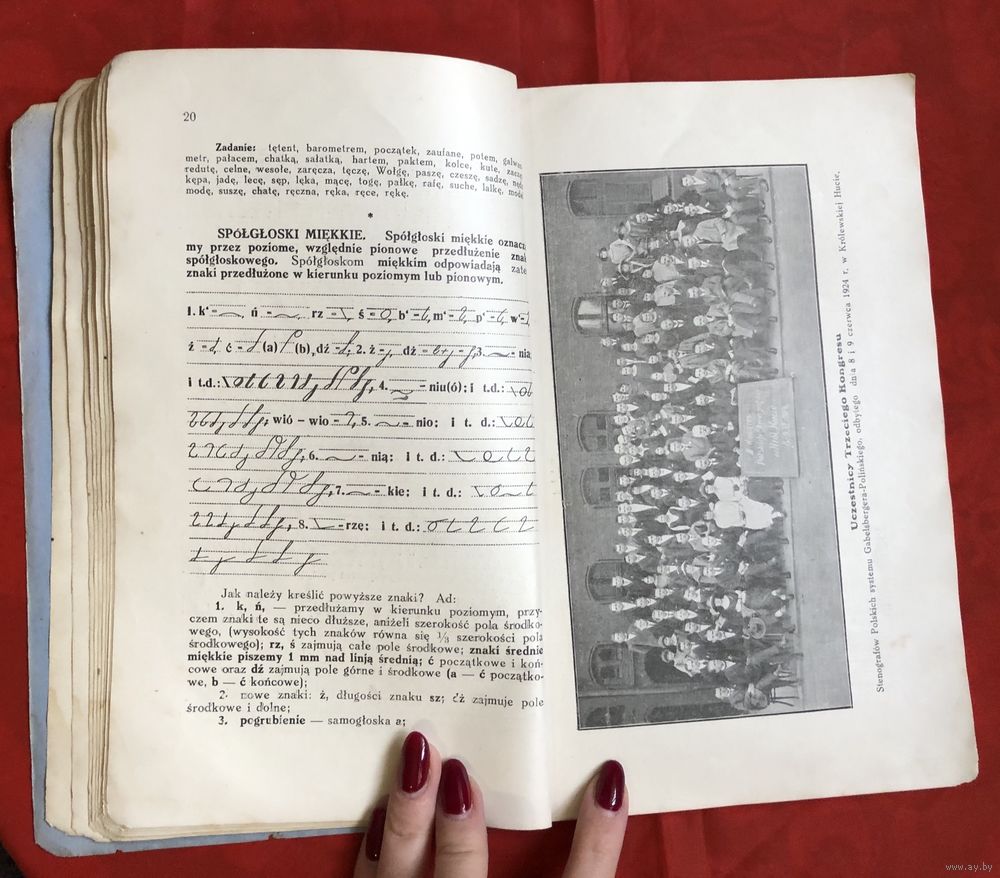 20
Zadanie: tętent, barometrem, początek, zaufane, potem, galwano-
metr, pałacem, chatką, sałatką, hartem, paktem, kolce, kute, zaczą
redutę, celne, wesołe, zaręcza, tęczę, Wołgę, paszę, czeszę, sadzę, nędz
kępa, jadę, lecę, sęp, lęka, mącę, togę, pałkę, rafę, suche, lalkę, mode
modę, suszę, chatę, ręczna, ręka, ręce, rękę.
*
SPÓŁGŁOSKI MIĘKKIE. Spółgłoski miękkie oznacza
my przez poziome, względnie pionowe przedłużenie znak
spółgłoskowego. Spółgłoskom miękkim odpowiadają zate
znaki przedłużone w kierunku poziomym lub pionowym.
1. k'= ń = rz = ś = b' = m' = p' = w' =
ż = ć = (a) (b), dź = 2. ż = dż = 3. = nia
i t.d.: 4. = niu(ó); i t.d.:
wió – wio = 5. = nio; i t. d.:
6. = nią; i t. d.:
7. = kie; i t. d.:
8. = rzę; i t. d.:
Jak należy kreślić powyższe znaki? Ad:
1. k, ń, — przedłużamy w kierunku poziomym, przy-
czem znaki te są nieco dłuższe, aniżeli szerokość pola środko-
wego, (wysokość tych znaków równa się 1/3 szerokości pola
środkowego); rz, ś zajmują całe pole środkowe; znaki średnie
miękkie piszemy 1 mm nad linją średnią; ć początkowe i koń-
cowe oraz dź zajmują pole górne i środkowe (a — ć początko-
we, b — ć końcowe);
2. nowe znaki: ż, długości znaku sz; dż zajmuje pole
środkowe i dolne;
3. pogrubienie — samogłoska a;
Uczestnicy Trzeciego Kongresu
Stenografów Polskich systemu Gabelsbergera-Polińskiego, odbytego dnia 8 i 9 czerwca 1924 r. w Królewskiej Hucie.
www.ay.by